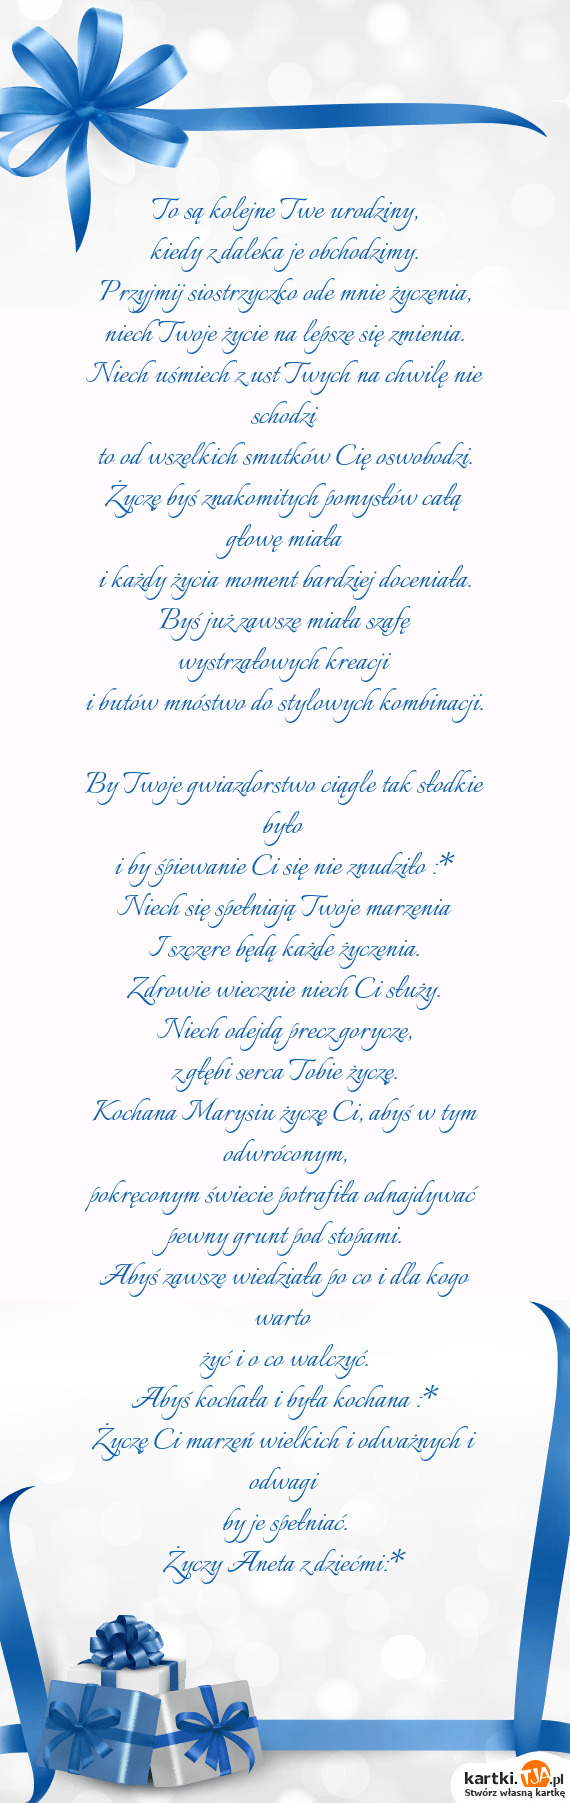 To są kolejne Twe urodziny,
kiedy z daleka je obchodzimy.
Przyjmij siostrzyczko ode mnie życzenia,
niech Twoje życie na lepsze się zmienia.
Niech uśmiech z ust Twych na chwilę nie
schodzi
to od wszelkich smutków Cię oswobodzi.
Życzę byś znakomitych pomysłów całą
głowę miała
i każdy życia moment bardziej doceniała.
Byś już zawsze miała szafę
wystrzałowych kreacji
i butów mnóstwo do stylowych kombinacji.
By Twoje gwiazdorstwo ciągle tak słodkie
było
i by śpiewanie Ci się nie znudziło :*
Niech się spełniają Twoje marzenia
I szczere będą każde życzenia.
Zdrowie wiecznie niech Ci służy.
Niech odejdą precz gorycze,
z głębi serca Tobie życzę.
Kochana Marysiu życzę Ci, abyś w tym
odwróconym,
pokręconym świecie potrafiła odnajdywać
pewny grunt pod stopami.
Abyś zawsze wiedziała po co i dla kogo
warto
żyć i o co walczyć.
Abyś kochała i była kochana :*
Życzę Ci marzeń wielkich i odważnych i
odwagi
by je spełniać.
Życzy Aneta z dziećmi:*
kartki.TJA.pl
Stwórz własną kartkę